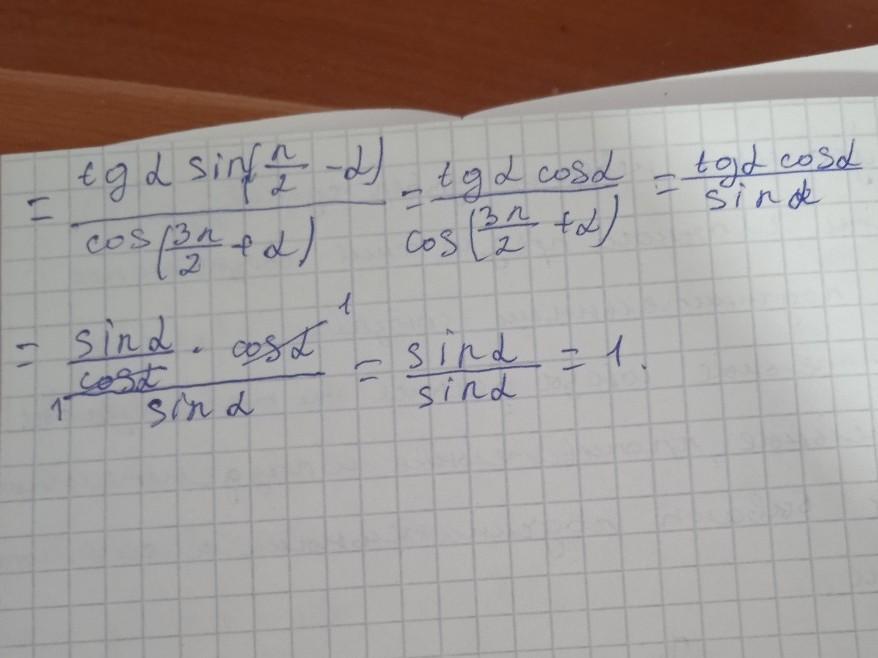 = tg α sin(π/2 - α) / cos(3π/2 + α) = tg α cos α / cos(3π/2 + α) = tg α cos α / sin α
= sin α / cos α · cos α 1 / 1 sin α = sin α / sin α = 1.